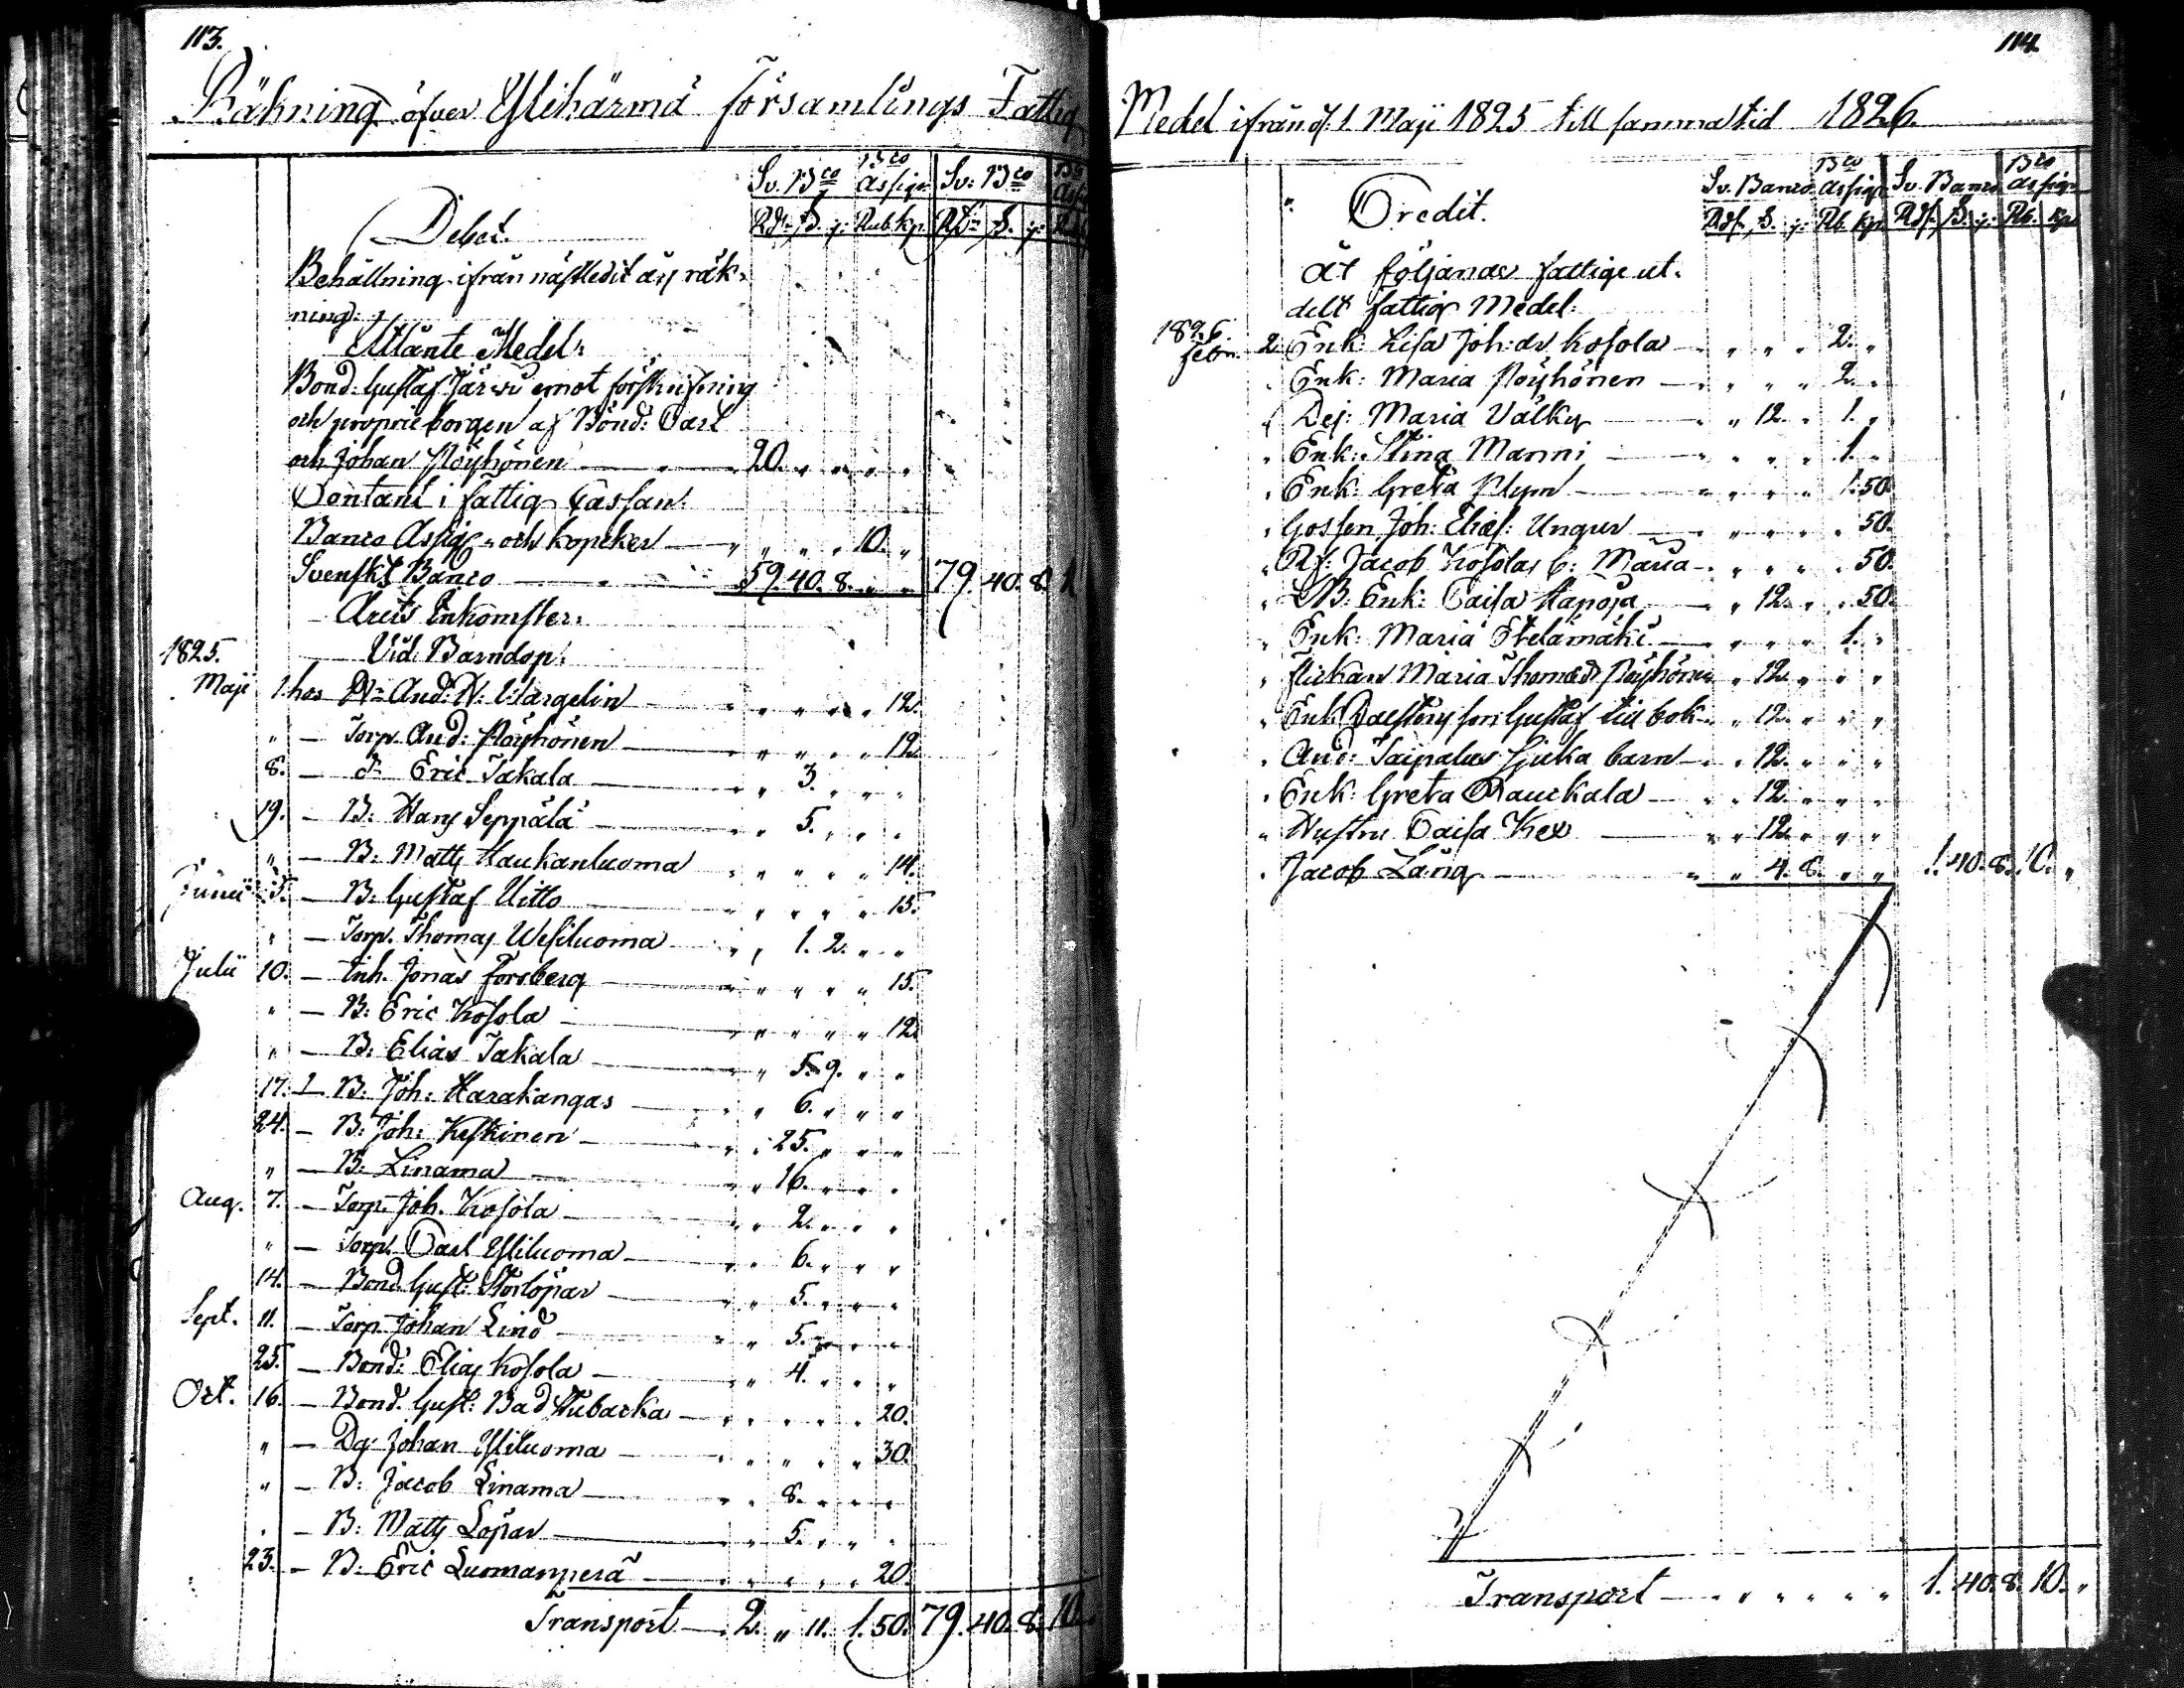 113.
Räkning öfver Ylihärmä församlings Fattig
Sv. Bco Bco Assign. Sv: Bco
Rdr. S. r: Rub. kp. Rdr. S. r:
Debet.
Behållning ifrån näst led. års räk-
ning:
Utlånte Medel:
Bond: Gustaf Järwi emot förskrifning
och proprieborgen af Bönd: Carl
och Johan Pöyhönen — 20. " " " "
Contant i fattig Cassan:
Banco Assign. och kopeker — " " " 10. "
Svenskt Banco — 59. 40. 8. " " 79. 40. 8.
Årets Inkomster:
Vid Barndop:
1825.
Maji 1. hos And: Wargelin — " " " " 12.
" — Torp. And: Pöyhönen — " " " " 12.
8. — Eric Takala — " 3. " " "
19. — B: Hans Seppälä — " 5. " " "
" — B: Matts Haukanluoma " " " " 14.
Junii 5. — B: Gustaf Uitto — " " " " 15.
" — Torp. Thomas Wesiluoma " 1. 2. " "
Julii 10. — Inh. Jonas Forsberg — " " " " 15.
" — B: Eric Kosola — " " " " 12.
" — B: Elias Takala — " 5. 9. " "
17. — B: Joh: Harakangas — " 6. " " "
24. — B: Joh: Keskinen — " 25. " " "
" — B: Linama — " 16. " " "
Aug. 7. — Torp. Joh. Kosola — " 2. " " "
" — Torp. Carl Yliluoma — " 6. " " "
14. — Bond. Gust: Storlöpar — " 5. " " "
Sept. 11. — Torp. Johan Lind — " 5. " " "
25. — Bond: Elias Kosola — " 4. " " "
Oct. 16. — Bond. Gust: Bad — " " " " 20.
" — Johan Yliluoma — " " " " 30.
" — B: Jacob Linama — " 8. " " "
" — B: Matts Löpar — " 5. " " "
23. — B: Eric Luomanperä — " " " " 20.
Transport — 2. " 11. 1. 50. 79. 40. 8. 10.
114.
Medel ifrån d. 1. Maji 1825 till samma tid 1826.
Sv. Banco Bco Assign. Sv. Banco Bco Assign.
Rdr. S. r: Rb. kp. Rdr. S. r: Rb. kp.
Credit.
Åt följande fattige ut-
delt fattig Medel:
1826.
Febr. 2. Enk: Lisa Joh:dr Kosola — " " " 2. "
" Enk: Maria Pöyhönen — " " " 2. "
" Maria Välky — " 12. " 1. "
" Enk: Stina Manni — " " " 1. "
" Enk: Greta Plym — " " " 1. 50.
" Gossen Joh: Elias: Ungur — " " " " 50.
" Jacob Kosolas Maria — " " " " 50.
" Enk: Caisa Hapoja — " 12. " " 50.
" Enk: Maria Etelämäki — " " " 1. "
" Flickan Maria Thomasdr Pöyhönen " 12. " " "
" Enk son Gustaf till bok — " 12. " " "
" And: Taipalus sjuka barn — " 12. " " "
" Enk: Greta Rauckala — " 12. " " "
" Hustru Caisa Kex — " 12. " " "
" Jacob Lång — " 4. 8. " " 1. 40. 8. 10. "
Transport — " " " " " 1. 40. 8. 10. "